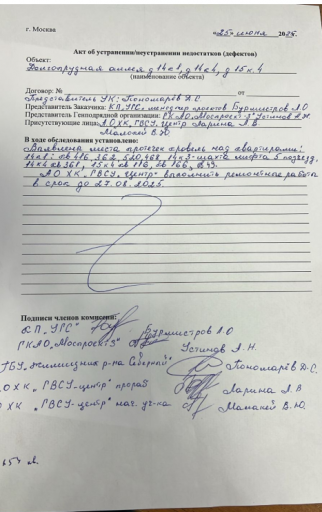 г. Москва «25» июня 2025.
Акт об устранении/неустранении недостатков (дефектов)
Объект:
Долгопрудная аллея д 14к1, д 14к2, д 15 к.4
(наименование объекта)
Договор: № от
Представитель УК: Пономарёв Д.С.
Представитель Заказчика: КП "УГС" менеджер проектов Бурмистров Л.О
Представитель Генподрядной организации: ГК АО "Моспроект-3" Устинов А.Н.
Присутствующие лица: АО ХК "ГВСУ-Центр" Ларина Л В
Мамакей В.Ю
В ходе обследования установлено:
места протечек кровель над квартирами:
14к1: кв 416, 362, 468, шахта лифта 5 подъезд.
кв 361, 15к4 кв 116, кв 166,
АО ХК "ГВСУ Центр" выполнить ремонтные работы
в срок до 27.08.2025.
Подписи членов комиссии:
КП "УГС" Бурмистров Л.О
ГК АО "Моспроект3" Устинов А.Н.
ГБУ "Жилищник р-на Северный" Пономарёв Д.С.
О ХК "ГВСУ-центр" прораб Ларина Л.В
О ХК "ГВСУ-центр" нач. уч-ка Мамакей В.Ю.